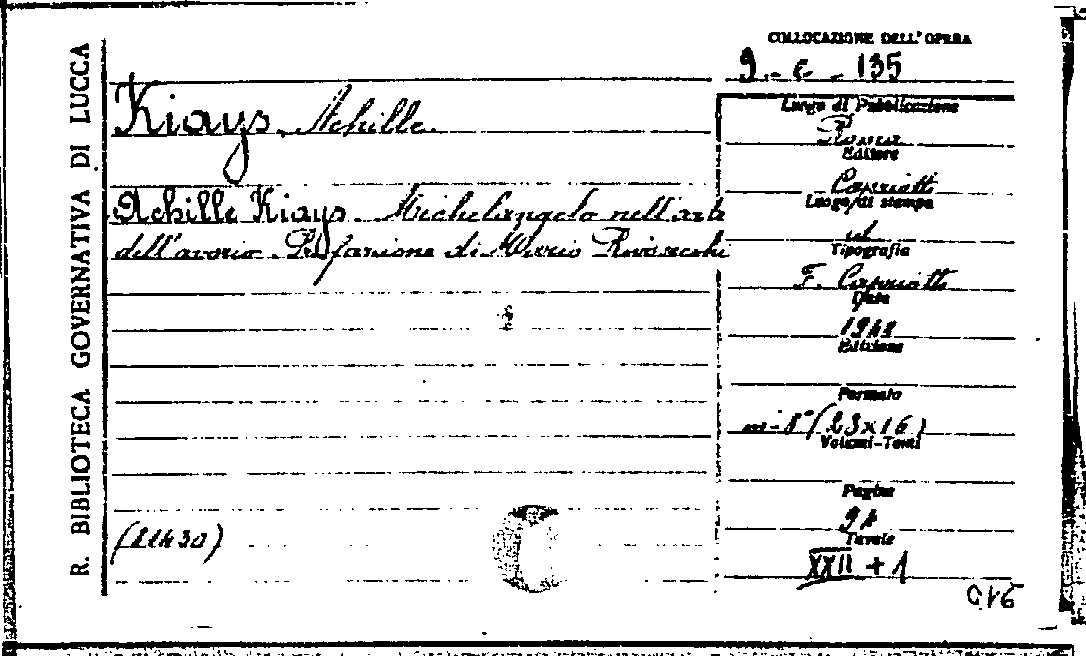 R. BIBLIOTECA GOVERNATIVA DI LUCCA
COLLOCAZIONE DELL'OPERA
9 - c - 135
Kiays, Achille.
Achille Kiays. Michelangelo nell'arte
dell'avorio. Prefazione di Mario Rivosecchi
(21430)
Luogo di Pubblicazione
Roma
Editore
Capriotti
Luogo di stampa
id
Tipografia
F. Capriotti
Data
Edizione
Formato
in-8° (23x16)
Volumi-Tomi
Pagine
Tavole
XXII + 1